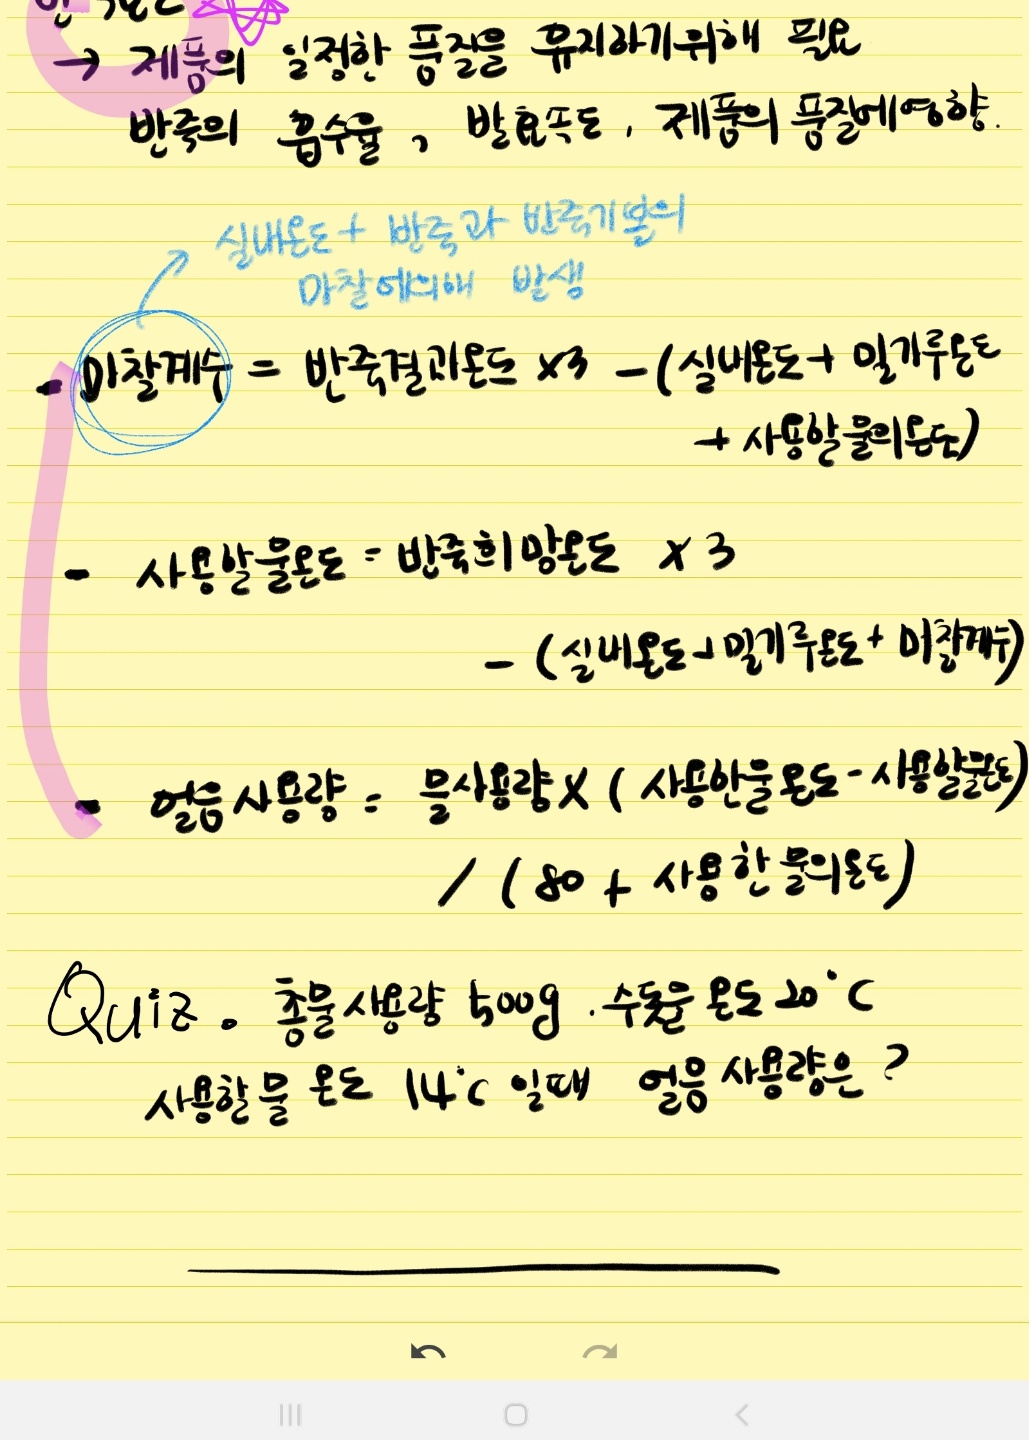 반죽온도
→ 제품의 일정한 품질을 유지하기위해 필요
반죽의 흡수율, 발효속도, 제품의 품질에영향.
실내온도 + 반죽과 반죽기볼의
마찰에의해 발생
- 마찰계수 = 반죽결과온도 ×3 - (실내온도 + 밀가루온도
+ 사용할물의온도)
- 사용할물온도 = 반죽희망온도 × 3
- (실내온도+밀가루온도 + 마찰계수)
- 얼음사용량 = 물사용량 × ( 사용한물온도 - 사용할물온도)
/ ( 80 + 사용한 물의온도)
Quiz. 총물사용량 500g. 수돗물 온도 20°C
사용할물 온도 14°C 일때 얼음 사용량은?